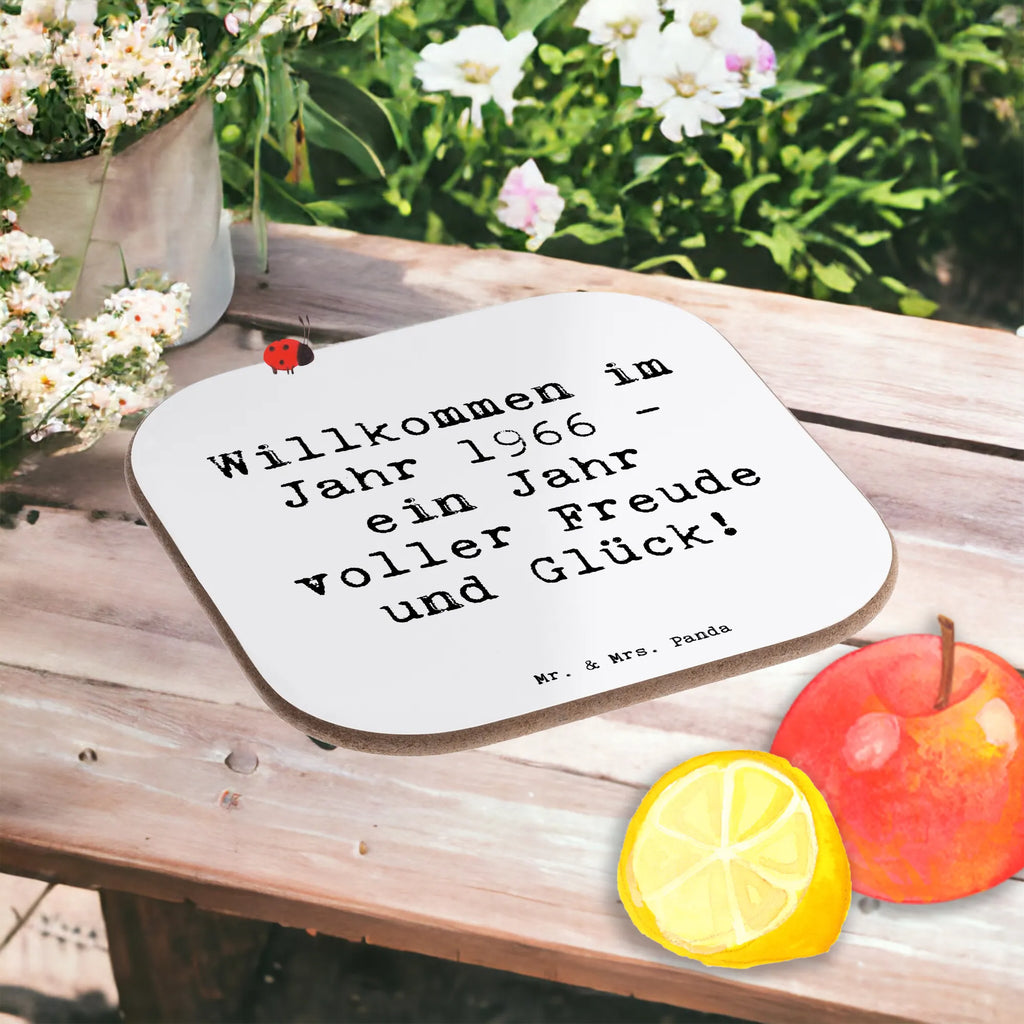 Willkommen im
Jahr 1966 -
ein Jahr
voller Freude
und Glück!
Mr. & Mrs. Panda